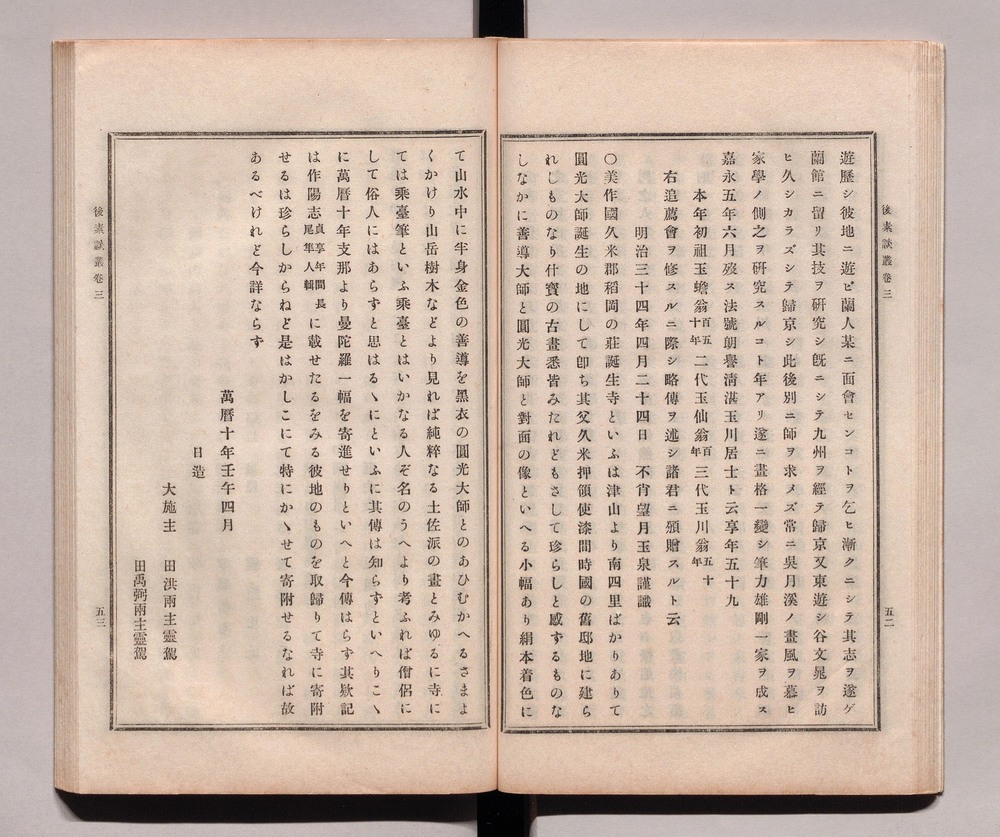 後素談叢卷三
遊歷シ彼地ニ遊ビ蘭人某ニ面會センコトヲ乞ヒ漸クニシテ其志ヲ遂ゲ
蘭館ニ留リ其技ヲ硏究シ旣ニシテ九州ヲ經テ歸京又東遊シ谷文晁ヲ訪
ヒ久シカラズシテ歸京シ此後別ニ師ヲ求メズ常ニ吳月溪ノ畫風ヲ慕ヒ
家學ノ側之ヲ硏究スルコト年アリ遂ニ畫格一變シ筆力雄剛一家ヲ成ス
嘉永五年六月歿ス法號朗譽淸湛玉川居士ト云享年五十九
本年初祖玉蟾翁百五十年二代玉仙翁百年三代玉川翁五十年
右追薦會ヲ修スルニ際シ略傳ヲ述シ諸君ニ頒贈スルト云
明治三十四年四月二十四日 不肖望月玉泉謹識
〇美作國久米郡稻岡の莊誕生寺といふは津山より南四里ばかりありて
圓光大師誕生の地にして卽ち其父久米押領使漆間時國の舊邸地に建ら
れしものなり什寶の古畫悉皆みたれどもさして珍らしと感ずるものな
しなかに善導大師と圓光大師と對面の像といへる小幅あり絹本着色に
五二
て山水中に半身金色の善導を黑衣の圓光大師とのあひむかへるさまよ
くかけり山岳樹木などより見れば純粹なる土佐派の畫とみゆるに寺に
ては乘臺筆といふ乘臺とはいかなる人ぞ名のうへより考ふれば僧侶に
して俗人にはあらずと思はるヽにといふに其傳は知らずといへりこヽ
に萬曆十年支那より曼陀羅一幅を寄進せりといへと今傳はらず其欵記
は作陽志貞享年間長尾隼人輯に載せたるをみる彼地のものを取歸りて寺に寄附
せるは珍らしからねど是はかしこにて特にかヽせて寄附せるなれば故
あるべけれど今詳ならず
萬曆十年壬午四月
日造
大施主 田洪雨主靈駕
田禹弼雨主靈駕
後素談叢卷三
五三